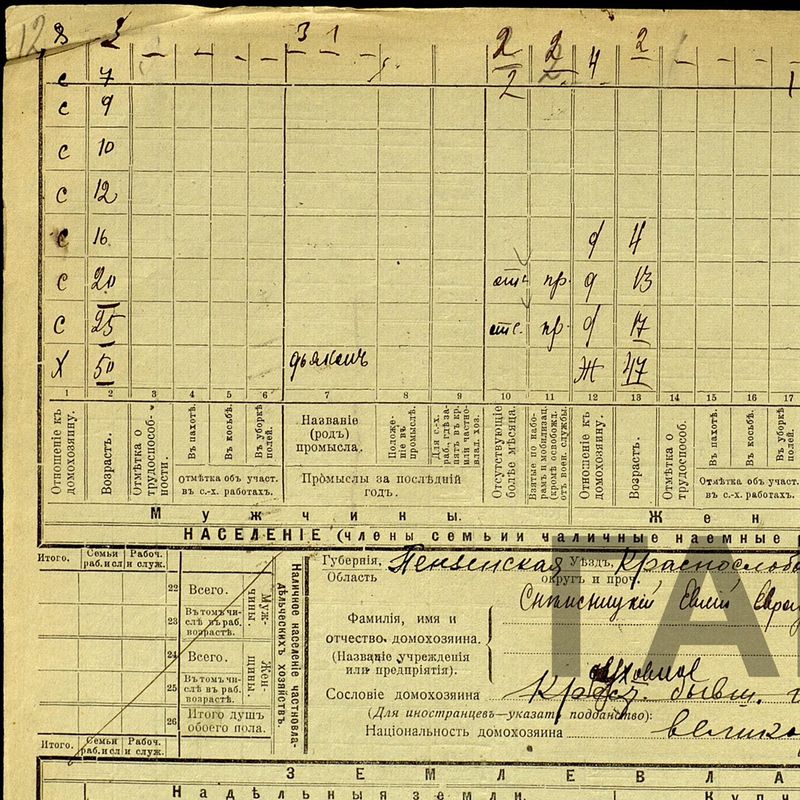 12 8 2 3 1 2 2 4 2
с 7 2 2
с 9
с 10
с 12
с 16 д 4
с 20 отс. пр. д 13
с 25 отс. пр. д 17
Х 50 дьяконъ Ж 47
1 2 3 4 5 6 7 8 9 10 11 12 13 14 15 16 17
Отношеніе къ домохозяину.
Возрастъ.
Отмѣтка о трудоспособности.
Въ пахотѣ.
Въ косьбѣ.
Въ уборкѣ полей.
Отмѣтка объ участ. въ с.-х. работахъ.
Названіе (родъ) промысла.
Положеніе въ промыслѣ.
Для с.-х. раб. гдѣ занятъ въ кр. или частновлад. хоз.
Промыслы за послѣдній годъ.
Отсутствующіе болѣе мѣсяца.
Взятые по наборамъ и мобилизац. (кромѣ освобожд. отъ воен. службы.
Отношеніе къ домохозяину.
Возрастъ.
Отмѣтка о трудоспособ.
Въ пахотѣ.
Въ косьбѣ.
Въ уборкѣ полей
Отмѣтка объ участ. въ с.-х. работахъ.
Мужчины. Жен
НАСЕЛЕНІЕ (члены семьии наличные наемные р
Итого. Семьи раб. и сл Рабоч. и служ.
22 Всего.
23 Въ томъ числѣ въ раб. возрастѣ.
Мужчины.
24 Всего.
25 Въ томъ числѣ въ раб. возрастѣ.
Женщины.
26 Итого душъ обоего пола.
Наличное населеніе частновладѣльческихъ хозяйствъ.
Итого. Семьи раб. и сл Рабоч. и служ.
Губернія, Область Пензенская Уѣздъ, округъ и проч. Краснослобо
Фамилія, имя и отчество домохозяина.
(Названіе учрежденія или предпріятія).
духовное
Сословіе домохозяина бывш.
(Для иностранцевъ—указать подданство):
Національность домохозяина велико
ГА
ЗЕМЛЕВЛА
Надѣльныя земли. Купч